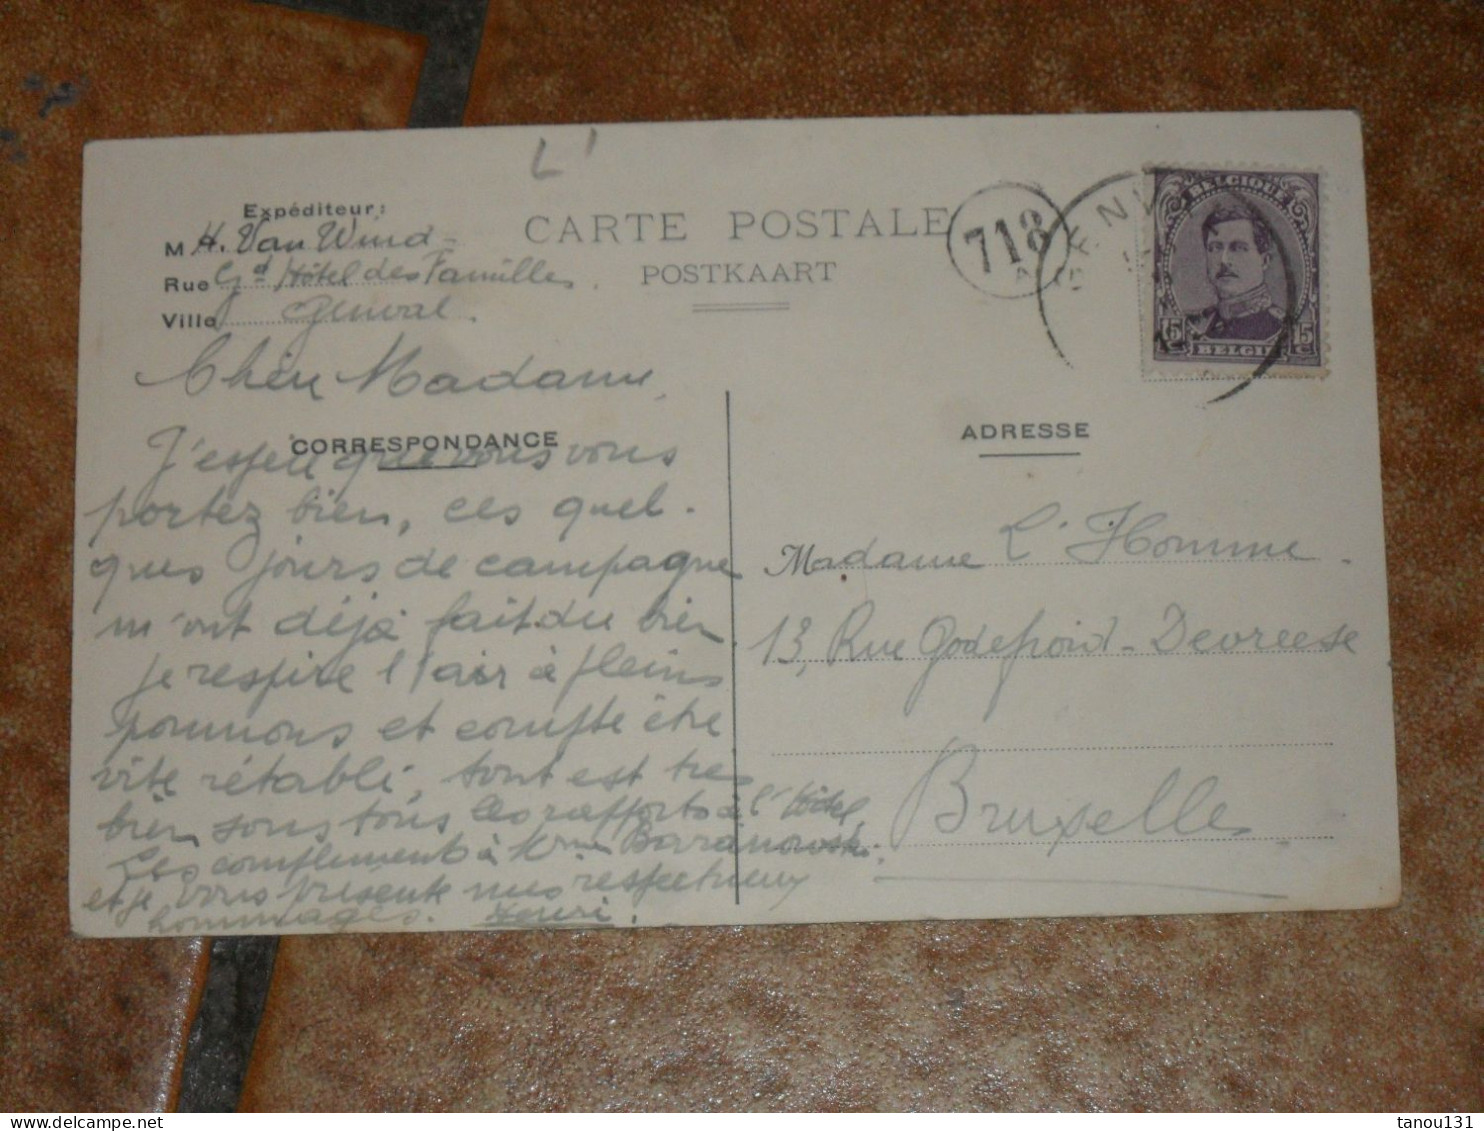 L'
Expéditeur:
M H. Van Wind
Rue Gd Hôtel des Familles.
Ville Genval.
CARTE POSTALE
POSTKAART
718
A
GENV
BELGIQUE
15 15
C C
BELGIË
Chère Madame,
CORRESPONDANCE
J'espère que vous vous
portez bien, ces quel-
ques jours de campagne
m'ont déjà fait du bien
je respire l'air à pleins
poumons et compte être
vite rétabli, tout est très
bien sous tous les rapports à l'hôtel.
Les compliments à Mme Baranowski.
et je vous présente mes respectueux
hommages. Henri.
ADRESSE
Madame L'Homme.
13, Rue Godefroid-Devreese
Bruxelles
tanou131